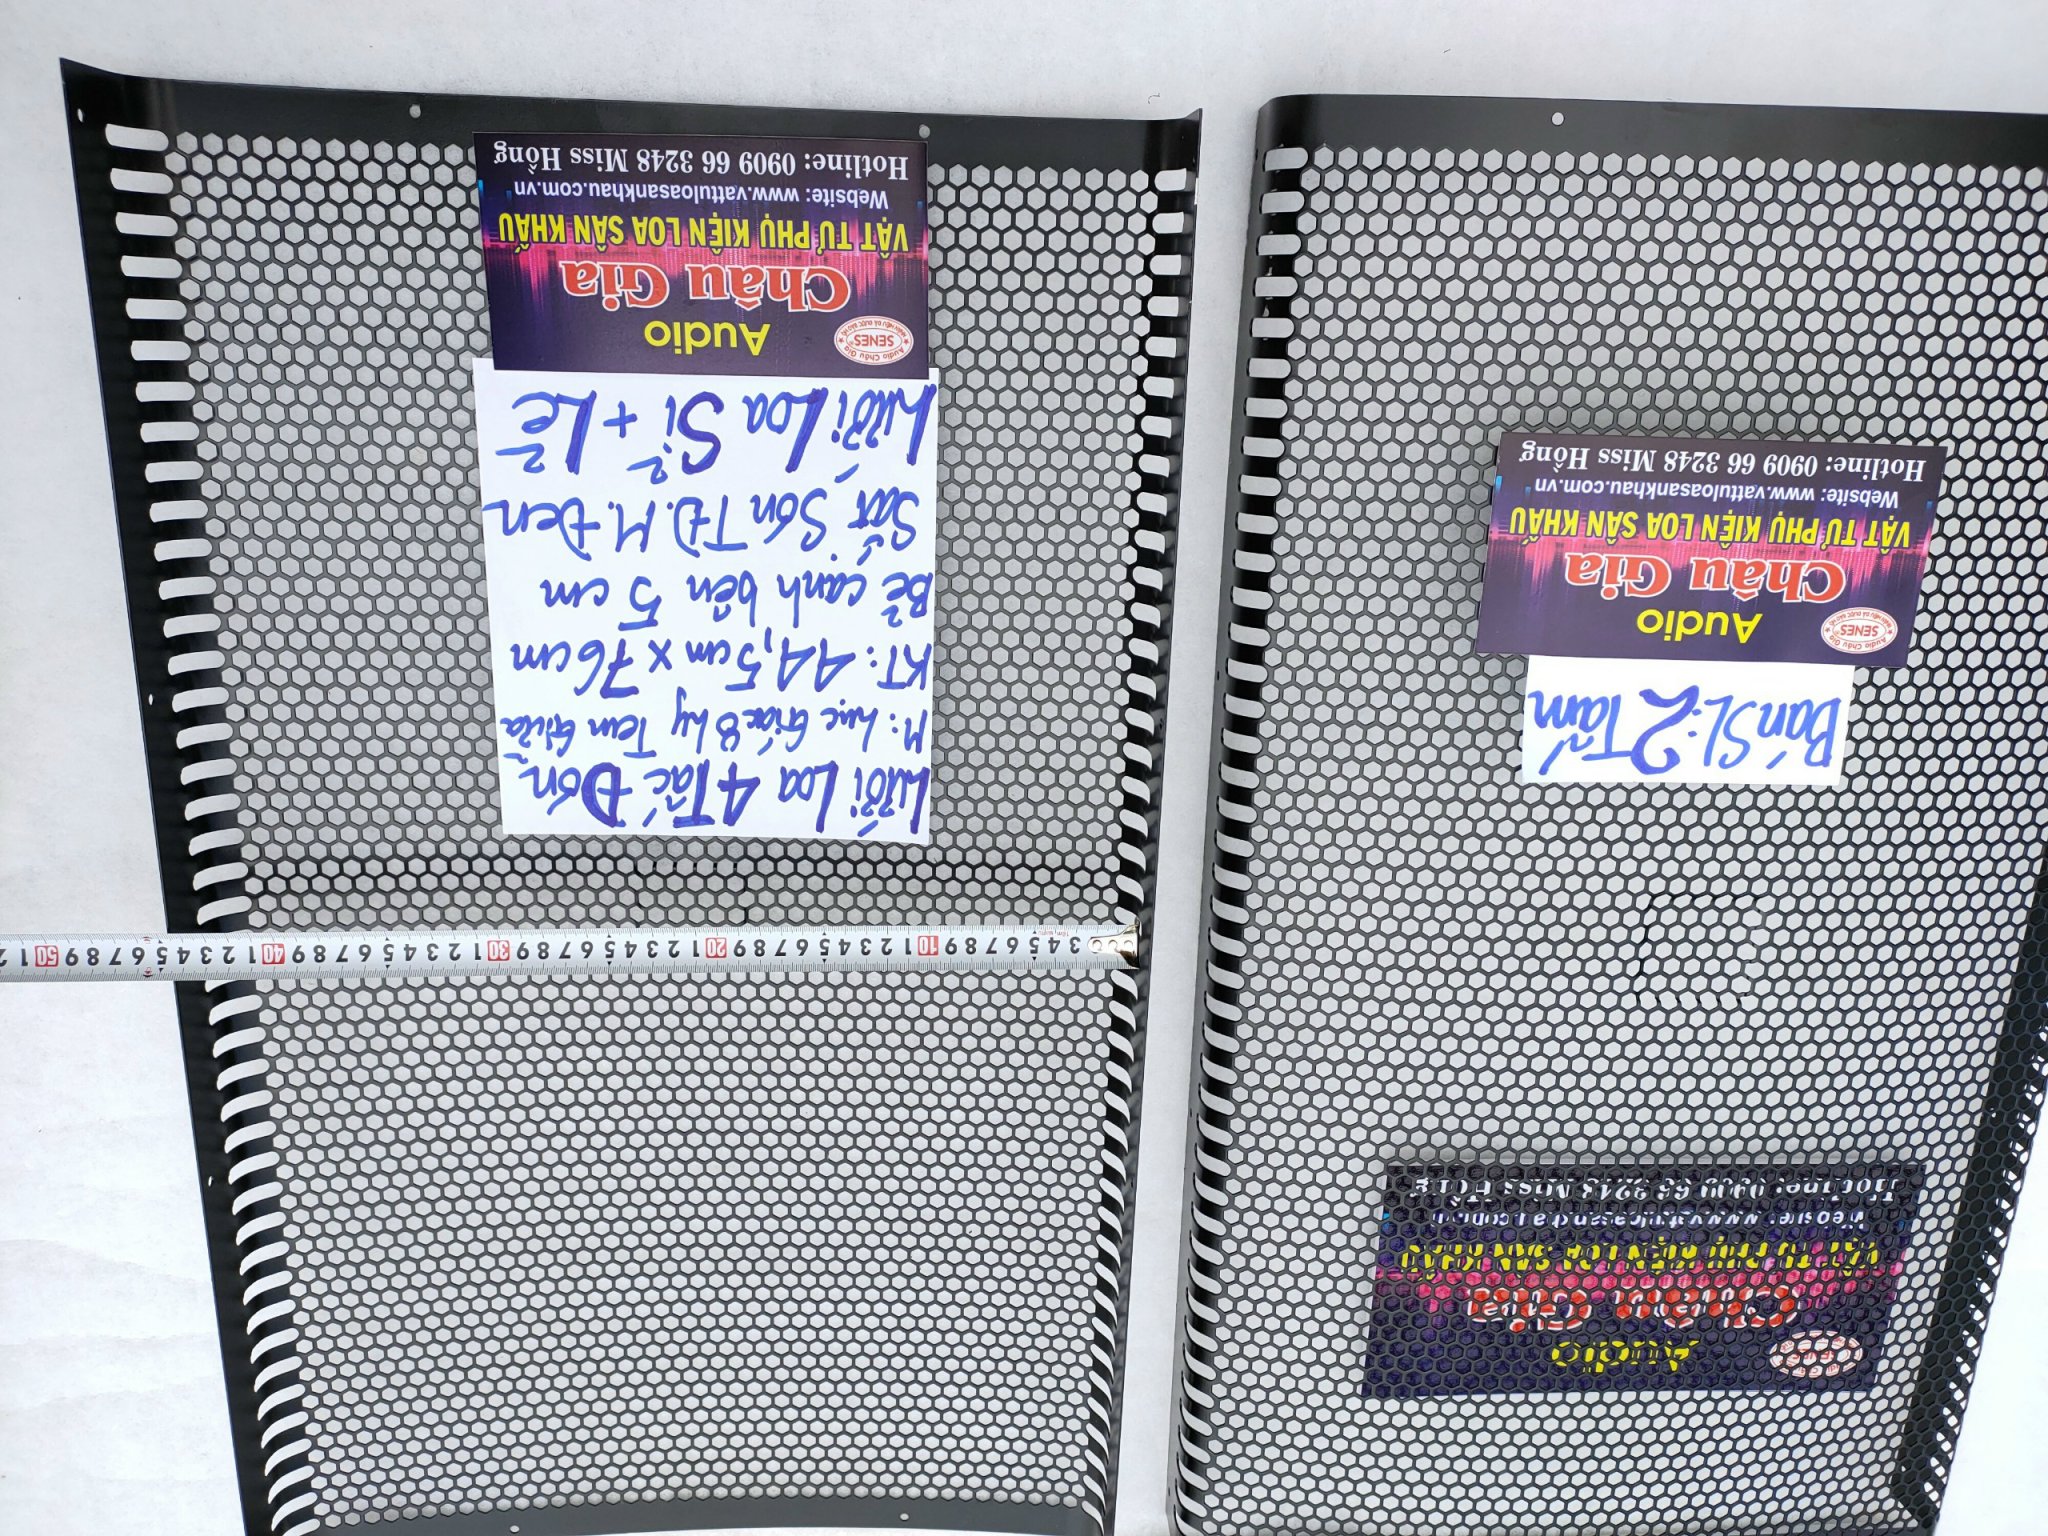 Lưới Loa 4 Tấc Đôn
M: Lục Giác 8 Ly Tem Giữa
KT: 44,5 cm x 76 cm
Bẻ cạnh bên 5 cm
Sắt Sơn TĐ. M. Đen
Lưới Loa Sỉ + Lẻ
Audio Châu Gia
SENES
NHÃN HIỆU ĐÃ ĐƯỢC BẢO HỘ
Audio
Châu Gia
VẬT TƯ PHỤ KIỆN LOA SÂN KHẤU
Website: www.vattuloasankhau.com.vn
Hotline: 0909 66 3248 Miss Hồng
Bán SL: 2 Tấm
Audio Châu Gia
SENES
NHÃN HIỆU ĐÃ ĐƯỢC BẢO HỘ
Audio
Châu Gia
VẬT TƯ PHỤ KIỆN LOA SÂN KHẤU
Website: www.vattuloasankhau.com.vn
Hotline: 0909 66 3248 Miss Hồng
Audio
Châu Gia
VẬT TƯ PHỤ KIỆN LOA SÂN KHẤU
Website: www.vattuloasankhau.com.vn
Hotline: 0909 66 3248 Miss Hồng
3 4 5 6 7 8 9 10 1 2 3 4 5 6 7 8 9 20 1 2 3 4 5 6 7 8 9 30 1 2 3 4 5 6 7 8 9 40 1 2 3 4 5 6 7 8 9 50 1 2